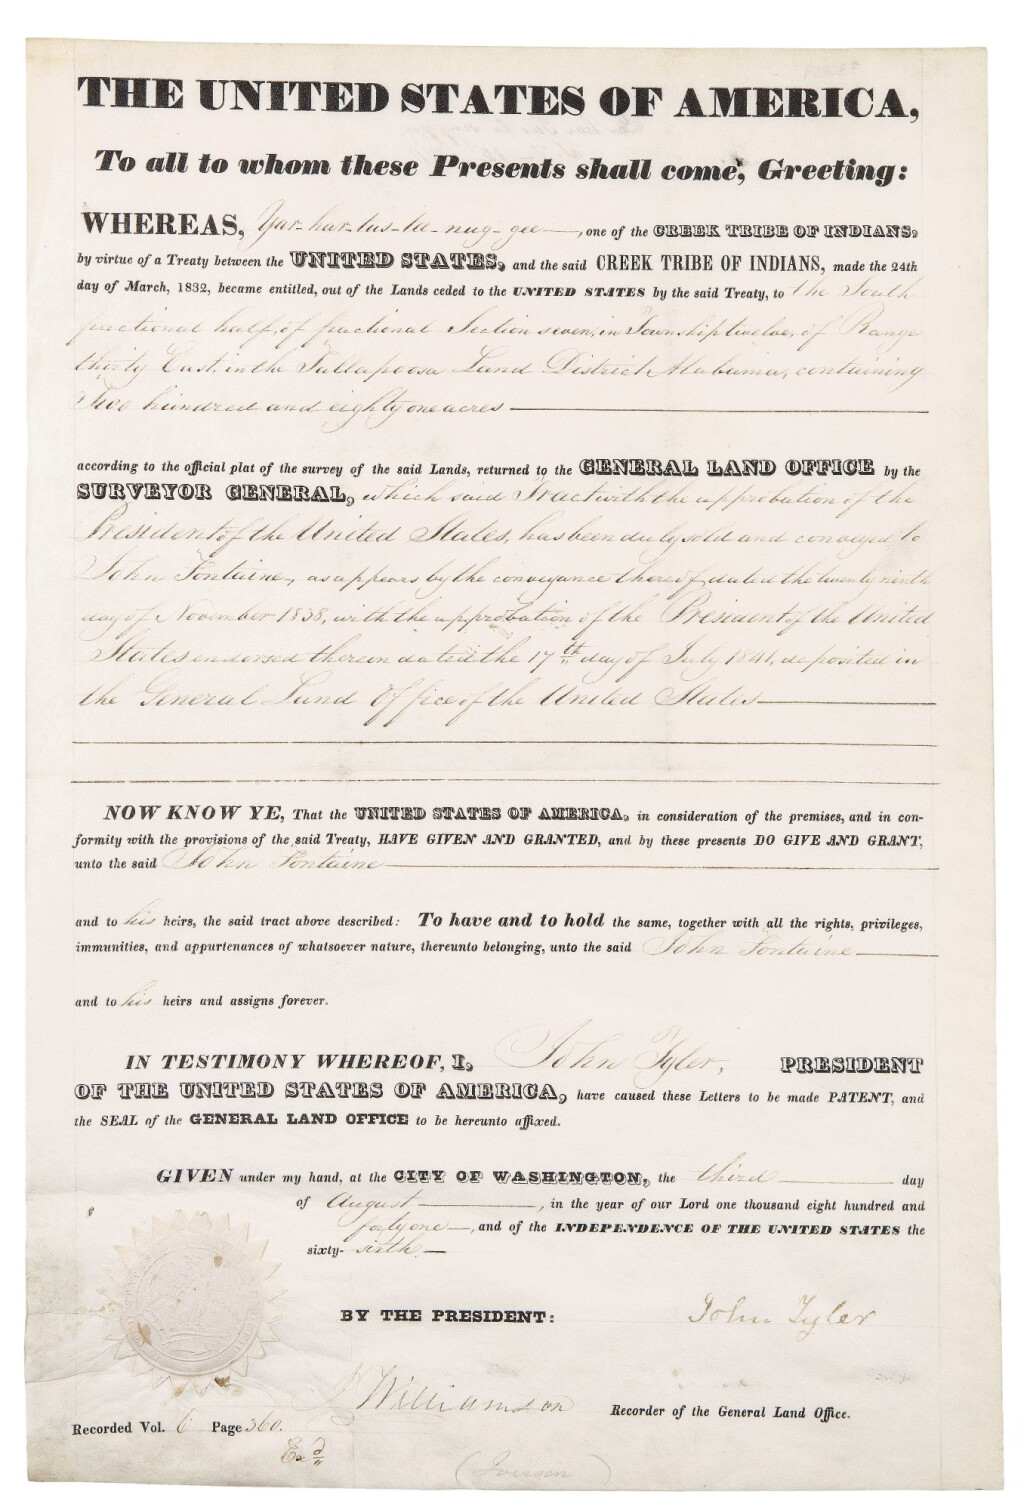 THE UNITED STATES OF AMERICA,
To all to whom these Presents shall come, Greeting:
WHEREAS, Yar-har-tus-tee-nug-gee, one of the CREEK TRIBE OF INDIANS,
by virtue of a Treaty between the UNITED STATES, and the said CREEK TRIBE OF INDIANS, made the 24th
day of March, 1832, became entitled, out of the Lands ceded to the UNITED STATES by the said Treaty, to the South
fractional half, of fractional Section seven, in Township twelve, of Range
thirty East, in the Tallapoosa Land District Alabama, containing
Two hundred and eighty one acres
according to the official plat of the survey of the said Lands, returned to the GENERAL LAND OFFICE by the
SURVEYOR GENERAL, which said Tract with the approbation of the
President of the United States, has been duly sold and conveyed to
John Fontaine, as appears by the conveyance thereof, dated the twenty ninth
day of November 1838, with the approbation of the President of the United
States endorsed thereon dated the 17th day of July 1841, deposited in
the General Land Office of the United States
NOW KNOW YE, That the UNITED STATES OF AMERICA, in consideration of the premises, and in con-
formity with the provisions of the said Treaty, HAVE GIVEN AND GRANTED, and by these presents DO GIVE AND GRANT,
unto the said John Fontaine
and to his heirs, the said tract above described: To have and to hold the same, together with all the rights, privileges,
immunities, and appurtenances of whatsoever nature, thereunto belonging, unto the said John Fontaine
and to his heirs and assigns forever.
IN TESTIMONY WHEREOF, I, John Tyler, PRESIDENT
OF THE UNITED STATES OF AMERICA, have caused these Letters to be made PATENT, and
the SEAL of the GENERAL LAND OFFICE to be hereunto affixed.
GIVEN under my hand, at the CITY OF WASHINGTON, the third day
of August, in the year of our Lord one thousand eight hundred and
forty one, and of the INDEPENDENCE OF THE UNITED STATES the
sixty-sixth.
BY THE PRESIDENT: John Tyler
J Williamson Recorder of the General Land Office.
Recorded Vol. 6 Page 360.
Exd